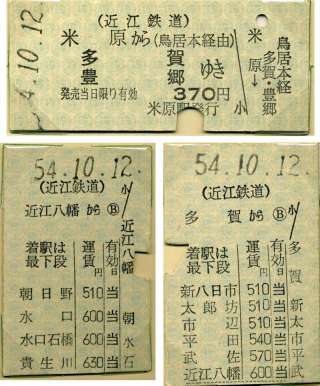 4.10.12
(近江鉄道)
米原から(鳥居本経由)
多賀
豊郷
ゆき
発売当日限り有効 370円
米原駅発行 小
米原→
鳥居本経
多賀・豊郷
54.10.12.
(近江鉄道)
近江八幡からⒷ
着駅は最下段
運賃円
有効日
朝日野 510 当
水口 600 当
水口石橋 600 当
貴生川 630 当
小
近江八幡
朝
水
石
54.10.12.
(近江鉄道)
多賀からⒷ
着駅は最下段
運賃円
有効日
新八日市 510 当
太郎坊 510 当
市辺 510 当
平田 540 当
武佐 570 当
近江八幡 600 当
小
多賀
新
太
市
市
平
武